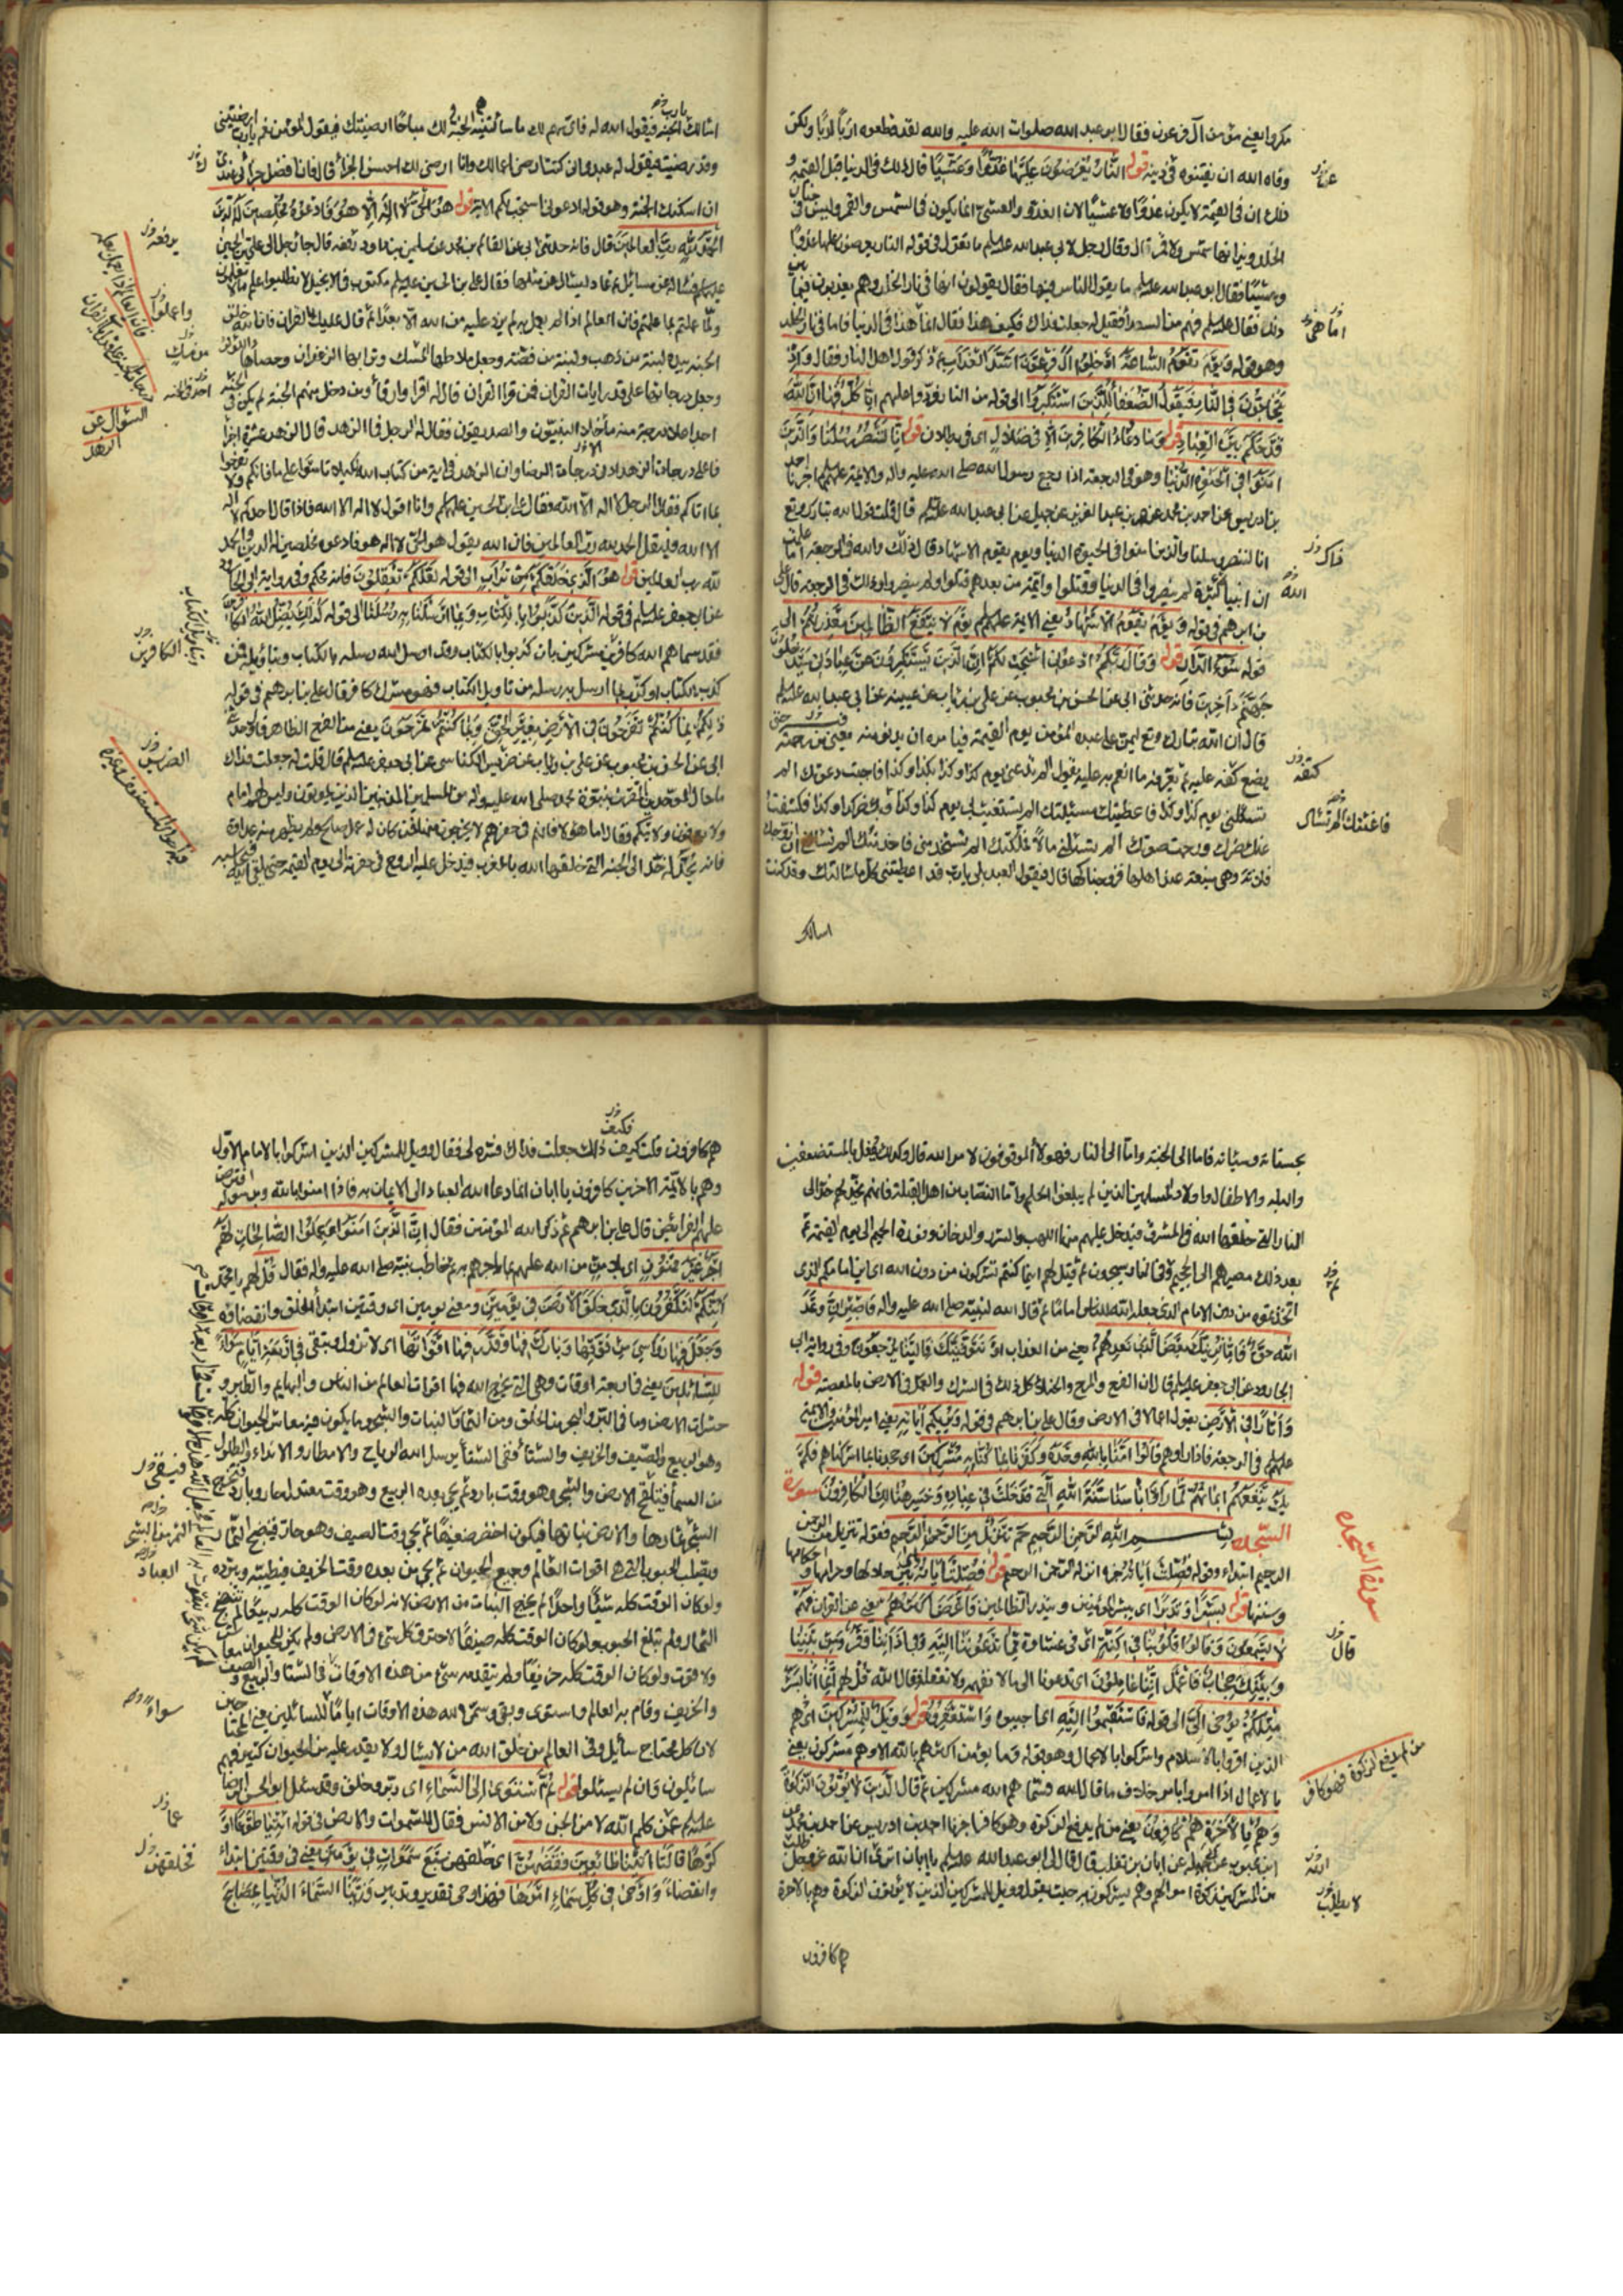 مكروا يعني مؤمن آل فرعون فقال ابو عبد الله صلوات الله عليه والله لقد قطعوه اربا اربا ولكن
وقاه الله ان يفتنوه في دينه قوله النَّارُ يُعْرَضُونَ عَلَيْهَا غُدُوًّا وَعَشِيًّا قال ذلك في الدنيا قبل القيمة و
ذلك ان في القيمة لا يكون غدوا ولا عشيا لان الغدو والعشي انما يكون في الشمس والقمر وليس في جنان
الخلد ونيرانها شمس ولا قمر قال وقال رجل لابي عبد الله عليه السلم ما تقول في قوله النار يعرضون عليها غدوا
وعشيا فقال ابو عبد الله عليه السلم ما يقول الناس فيها فقال يقولون انها في نار الخلد وهم يعذبون فيما بين
ذلك فقال عليه السلم فهم من السعدا فقيل له جعلت فداك فكيف هذا فقال انما هذا في الدنيا فاما في نار الخلد
وهو قوله وَيَوْمَ تَقُومُ السَّاعَةُ أَدْخِلُوا آلَ فِرْعَوْنَ أَشَدَّ الْعَذَابِ ثم ذكر قول اهل النار فقال وَإِذْ
يَتَحَاجُّونَ فِي النَّارِ فَيَقُولُ الضُّعَفَاءُ لِلَّذِينَ اسْتَكْبَرُوا الى قوله من النار فردوا عليهم إِنَّا كُلٌّ فِيهَا إِنَّ اللَّهَ
قَدْ حَكَمَ بَيْنَ الْعِبَادِ قوله وَمَا دُعَاءُ الْكَافِرِينَ إِلَّا فِي ضَلَالٍ اى في بطلان قوله إِنَّا لَنَنْصُرُ رُسُلَنَا وَالَّذِينَ
آمَنُوا فِي الْحَيَوةِ الدُّنْيَا وهو في الرجعة اذا رجع رسول الله صلى الله عليه واله والائمة عليهم السلم اخبرنا احمد
بن ادريس عن احمد بن محمد عن عمر بن عبد العزيز عن جميل عن ابي عبد الله عليه السلم قال قلت قول الله تبارك وتع
انا لننصر رسلنا والذين امنوا في الحيوة الدنيا ويوم يقوم الاشهاد قال ذلك والله في الرجعة اما علمت
ان انبيا كثيرة لم ينصروا في الدنيا وقتلوا وائمة من بعدهم قتلوا ولم ينصروا وذلك في الرجعة قال على
بن ابراهيم في قوله وَيَوْمَ يَقُومُ الْأَشْهَادُ يعني الائمة عليهم السلم يَوْمَ لَا يَنْفَعُ الظَّالِمِينَ مَعْذِرَتُهُمْ الى
قوله سُوءُ الدَّارِ قوله وَقَالَ رَبُّكُمُ ادْعُونِي أَسْتَجِبْ لَكُمْ إِنَّ الَّذِينَ يَسْتَكْبِرُونَ عَنْ عِبَادَتِي سَيَدْخُلُونَ
جَهَنَّمَ دَاخِرِينَ فانه حدثني ابي عن الحسن بن محبوب عن علي بن رئاب عن عيينة عن ابي عبد الله عليه السلم
قال ان الله تبارك وتع ليمن على عبده المؤمن يوم القيمة فيامره ان يدنو منه يعني من رحمته
يضع كنفه عليه ثم يعرفه ما انعم به عليه يقول الم تدعني يوم كذا وكذا بكذا وكذا فاجبت دعوتك الم
تسئلني يوم كذا وكذا فاعطيتك مسئلتك الم تستغث بي يوم كذا وكذا وبك ضر كذا وكذا فكشفت
عنك ضرك ورحمت صوتك الم تسئلني مالا فملكتك الم تستخدمني فاخدمتك الم تسئلني ان ازوجك
فلانة وهي منيعة عند اهلها فزوجناكها قال فيقول العبد بلى يا رب قد اعطيتني كل ما سالتك وقد كنت
اسالك
اسالك الجنة فيقول الله له فاني منعم لك ما سالتنيه الجنة لك مباحا ارضيتك فيقول المؤمن نعم يا رب ارضيتني
وقد رضيت فيقول له عبدي اني كنت ارضى اعمالك وانا ارضى لك احسن الجزاء فان افضل جزائي عندي
ان اسكنك الجنة وهو قوله ادعوني استجب لكم الاية قوله هُوَ الْحَيُّ لَا إِلَهَ إِلَّا هُوَ فَادْعُوهُ مُخْلِصِينَ لَهُ الدِّينَ
الْحَمْدُ لِلَّهِ رَبِّ الْعَالَمِينَ قال فانه حدثني ابي عن القاسم بن محمد عن سليمن بن داود رفعه قال جاء رجل الى علي بن الحسين
عليهم السلم فساله عن مسائل ثم عاد ليسئال عن مثلها فقال علي بن الحسين عليه السلم مكتوب في الانجيل لا تطلبوا علم ما لا تعلمون
ولما علمتم بما علمتم فان العالم اذا لم يعمل به لم يزد من الله الا بعدا ثم قال عليك بالقران فان الله خلق
الجنة بيده لبنة من ذهب ولبنة من فضة وجعل ملاطها المسك وترابها الزعفران وحصاها اللؤلؤ
وجعل درجاتها على قدر ايات القران فمن قرا القران قال له اقرا وارقا ومن دخل منهم الجنة لم يكن في الجنة
احد اعلا درجة منه ما خلا النبيون والصديقون فقال له الرجل فما الزهد قال الزهد عشرة اجزا
فاعلى درجات الزهد ادنى درجات الرضا الا وان الزهد في اية من كتاب الله لكيلا تاسوا على ما فاتكم ولا تفرحوا
بما اتاكم فقال الرجل لا اله الا الله فقال علي بن الحسين عليهم السلم وانا اقول لا اله الا الله فاذا قال احدكم لا اله
الا الله فليقل الحمد لله رب العالمين فان الله يقول هو الحي لا اله الا هو فادعوه مخلصين له الدين الحمد
لله رب العالمين قوله هُوَ الَّذِي خَلَقَكُمْ مِنْ تُرَابٍ الى قوله لَعَلَّكُمْ تَعْقِلُونَ فانه محكم وفي رواية ابي الجارود
عن ابي جعفر عليه السلم في قوله الَّذِينَ كَذَّبُوا بِالْكِتَابِ وَبِمَا أَرْسَلْنَا بِهِ رُسُلَنَا الى قوله كَذَلِكَ يُضِلُّ اللَّهُ الْكَافِرِينَ
فقد سماهم الله كافرين مشركين بان كذبوا بالكتاب وقد ارسل الله رسله بالكتاب وبتاويله فمن
كذب بالكتاب او كذب بما ارسل به رسله من تاويل الكتاب فهو مشرك كافر قال علي بن ابراهيم في قوله
ذَلِكُمْ بِمَا كُنْتُمْ تَفْرَحُونَ فِي الْأَرْضِ بِغَيْرِ الْحَقِّ وَبِمَا كُنْتُمْ تَمْرَحُونَ يعني من الفرح الظاهر قال وحدثني
ابي عن الحسن بن محبوب عن علي بن رئاب عن ضريس الكناسي عن ابي جعفر عليه السلم قال قلت له جعلت فداك
ما حال الموحدين المقرين بنبوة محمد صلى الله عليه واله من المسلمين المذنبين الذين يموتون وليس لهم امام
ولا يعرفون ولايتكم فقال اما هؤلا فانهم في حفرهم لا يخرجون منها فمن كان له عمل صالح ولم يظهر منه عداوة
فانه يخد له خدا الى الجنة التي خلقها الله بالمغرب فيدخل عليه الروح في حفرته الى يوم القيمة حتى يلقى الله فيحاسبه
بحسناته وسيئاته فاما الى الجنة واما الى النار فهولا الموقوفون لامر الله قال وكذلك يفعل بالمستضعفين
والبله والاطفال واولاد المسلمين الذين لم يبلغوا الحلم واما النصاب من اهل القبلة فانهم يخد لهم خدا الى
النار التي خلقها الله في المشرق فيدخل عليهم منها اللهب والشرر والدخان وفورة الحميم الى يوم القيمة ثم
بعد ذلك مصيرهم الى الجحيم وفي النار يسجرون ثم قيل لهم اينما كنتم تشركون من دون الله اى اين امامكم الذي
اتخذتموه من دون الامام الذي جعله الله للناس اماما ثم قال الله لنبيه صلى الله عليه واله فَاصْبِرْ إِنَّ وَعْدَ
اللَّهِ حَقٌّ فَإِمَّا نُرِيَنَّكَ بَعْضَ الَّذِي نَعِدُهُمْ يعني من العذاب أَوْ نَتَوَفَّيَنَّكَ فَإِلَيْنَا يُرْجَعُونَ وفي رواية ابي
الجارود عن ابي جعفر عليه السلم قال ان الفرح والمرح والخيلاء كل ذلك في الشرك والعمل في الارض بالمعصية قوله
وَآثَارًا فِي الْأَرْضِ يقول اعمالا في الارض وقال علي بن ابراهيم في قوله وَيُرِيكُمْ آيَاتِهِ يعني امير المؤمنين والائمة
عليهم السلم في الرجعة فاذا راوهم قَالُوا آمَنَّا بِاللَّهِ وَحْدَهُ وَكَفَرْنَا بِمَا كُنَّا بِهِ مُشْرِكِينَ اى جحدنا بما اشركناهم فَلَمْ
يَكُ يَنْفَعُهُمْ إِيمَانُهُمْ لَمَّا رَأَوْا بَأْسَنَا سُنَّةَ اللَّهِ الَّتِي قَدْ خَلَتْ فِي عِبَادِهِ وَخَسِرَ هُنَالِكَ الْكَافِرُونَ سورة
السجدة بسم الله الرحمن الرحيم حم تَنْزِيلٌ مِنَ الرَّحْمَنِ الرَّحِيمِ فقوله تنزيل من الرحمن
الرحيم ابتداء وقوله فُصِّلَتْ آيَاتُهُ خبره اى انزله الرحمن الرحيم قوله فُصِّلَتْ آيَاتُهُ اى بين حلالها وحرامها واحكامها و
وسننها قوله بَشِيرًا وَنَذِيرًا اى يبشر المؤمنين وينذر الظالمين فَأَعْرَضَ أَكْثَرُهُمْ يعني عن القران فَهُمْ
لَا يَسْمَعُونَ وَقَالُوا قُلُوبُنَا فِي أَكِنَّةٍ اى في غشاوة مِمَّا تَدْعُونَا إِلَيْهِ وَفِي آذَانِنَا وَقْرٌ وَمِنْ بَيْنِنَا
وَبَيْنِكَ حِجَابٌ فَاعْمَلْ إِنَّنَا عَامِلُونَ اى تدعونا الى ما لا نفهمه ولا نعقله فقال الله قُلْ لهم إِنَّمَا أَنَا بَشَرٌ
مِثْلُكُمْ يُوحَى إِلَيَّ الى قوله فَاسْتَقِيمُوا إِلَيْهِ اى اجيبوه وَاسْتَغْفِرُوهُ قوله وَوَيْلٌ لِلْمُشْرِكِينَ اى هم
الذين اقروا بالاسلام واشركوا بالاعمال وهو قوله وما يؤمن اكثرهم بالله الا وهم مشركون يعني
بالاعمال اذا امروا بامر خلاف ما قال الله فسماهم الله مشركين ثم قال الَّذِينَ لَا يُؤْتُونَ الزَّكَوةَ
وَهُمْ بِالْآخِرَةِ هُمْ كَافِرُونَ يعني من لم يدفع الزكوة وهو كافر اخبرنا احمد بن ادريس عن احمد بن محمد عن
ابن محبوب عن ابي جميلة عن ابان بن تغلب قال قال لي ابو عبد الله عليه السلم يا ابان اترى ان الله عز وجل طلب
من المشركين زكوة اموالهم وهم يشركون به حيث يقول وويل للمشركين الذين لا يؤتون الزكوة وهم بالاخرة
هم كافرون
هم كافرون قلت كيف ذلك جعلت فداك فسره لي فقال وويل للمشركين الذين اشركوا بالامام الاول
وهم بالائمة الاخرين كافرون يا ابان انما دعا الله العباد الى الايمان به فاذا امنوا بالله وبرسوله افترض
عليهم الفرايض قال علي بن ابراهيم ثم ذكر الله المؤمنين فقال إِنَّ الَّذِينَ آمَنُوا وَعَمِلُوا الصَّالِحَاتِ لَهُمْ
أَجْرٌ غَيْرُ مَمْنُونٍ اى بلا من من الله عليهم بما ياجرهم به ثم خاطب نبيه صلى الله عليه واله فقال قُلْ لهم يا محمد
أَئِنَّكُمْ لَتَكْفُرُونَ بِالَّذِي خَلَقَ الْأَرْضَ فِي يَوْمَيْنِ ومعنى يومين اى وقتين ابتداء الخلق وانقضاؤه
وَجَعَلَ فِيهَا رَوَاسِيَ مِنْ فَوْقِهَا وَبَارَكَ فِيهَا وَقَدَّرَ فِيهَا أَقْوَاتَهَا اى لا تزول وتبقى فِي أَرْبَعَةِ أَيَّامٍ سَوَاءً
لِلسَّائِلِينَ يعني في اربعة اوقات وهي التي يخرج الله فيها اقوات العالم من الناس والبهايم والطير و
حشرات الارض وما في البر والبحر من الخلق ومن الثمار والنبات والشجر وما يكون فيه معاش الحيوان كله
وهو الربيع والصيف والخريف والشتا ففي الشتا يرسل الله الرياح والامطار والانداء والطلول
من السما فيلقح الارض والشجر وهو وقت بارد ثم يجئ بعده الربيع وهو وقت معتدل حار وبارد فيخرج
الشجر ثمارها والارض نباتها فيكون اخضر ضعيفا ثم يجئ وقت الصيف وهو حار فينضج الثمار
ويصلب الحبوب التي هي اقوات العالم وجميع الحيوان ثم يجئ من بعده وقت الخريف فيطيبه ويبرده
ولو كان الوقت كله شيئا واحدا لم يخرج النبات من الارض لانه لو كان الوقت كله ربيعا لم تنضج
الثمار ولم تبلغ الحبوب ولو كان الوقت كله صيفا لاحترق كل شئ في الارض ولم يكن للحيوان معاش
ولا قوت ولو كان الوقت كله خريفا ولم يتقدمه شئ من هذه الاوقات في الشتا والربيع والصيف
والخريف وقام به العالم واستوى وبقي وسمى الله هذه الاوقات اياما للسائلين يعني المحتاجين
لان كل محتاج سائل وفي العالم من خلق الله من لا يسئال ولا يقدر عليه من الحيوان كثير فهم
سائلون وان لم يسئلوا قوله ثُمَّ اسْتَوَى إِلَى السَّمَاءِ اى دبر وخلق وقد سئل ابو الحسن الرضا
عليه السلم عمن كلم الله لا من الجن ولا من الانس فقال السموات والارض في قوله ائْتِيَا طَوْعًا أَوْ
كَرْهًا قَالَتَا أَتَيْنَا طَائِعِينَ فَقَضَاهُنَّ اى خلقهن سَبْعَ سَمَوَاتٍ فِي يَوْمَيْنِ يعني في وقتين ابتداء
وانقضاء وَأَوْحَى فِي كُلِّ سَمَاءٍ أَمْرَهَا فهذا وحى تقدير وتدبير وَزَيَّنَّا السَّمَاءَ الدُّنْيَا بِمَصَابِيحَ
سورة السجدة
من لم يدفع الزكوة فهو كافر
السؤال عن الزهد